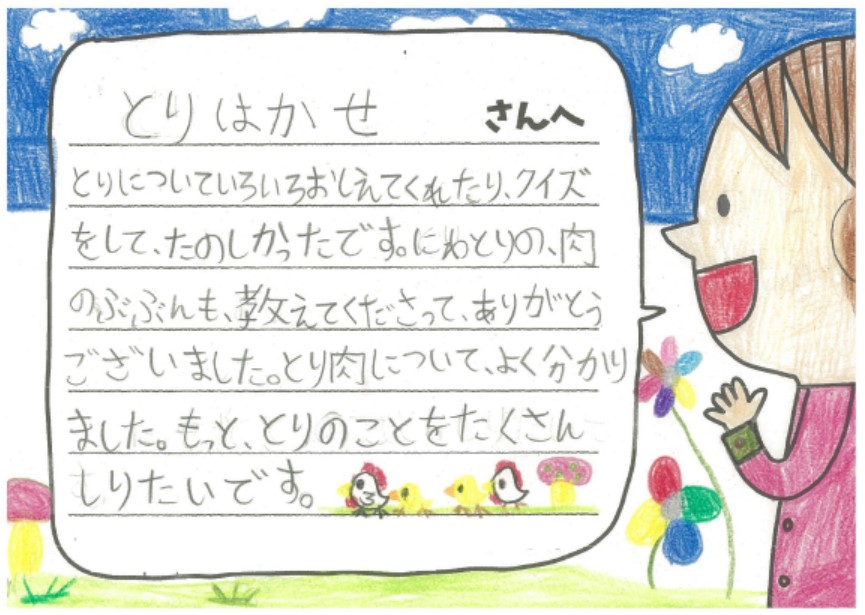 とりはかせ さんへ
とりについていろいろおしえてくれたり、クイズ
をして、たのしかったです。にわとりの、肉
のぶぶんも、教えてくださって、ありがとう
ございました。とり肉について、よく分かり
ました。もっと、とりのことをたくさん
しりたいです。